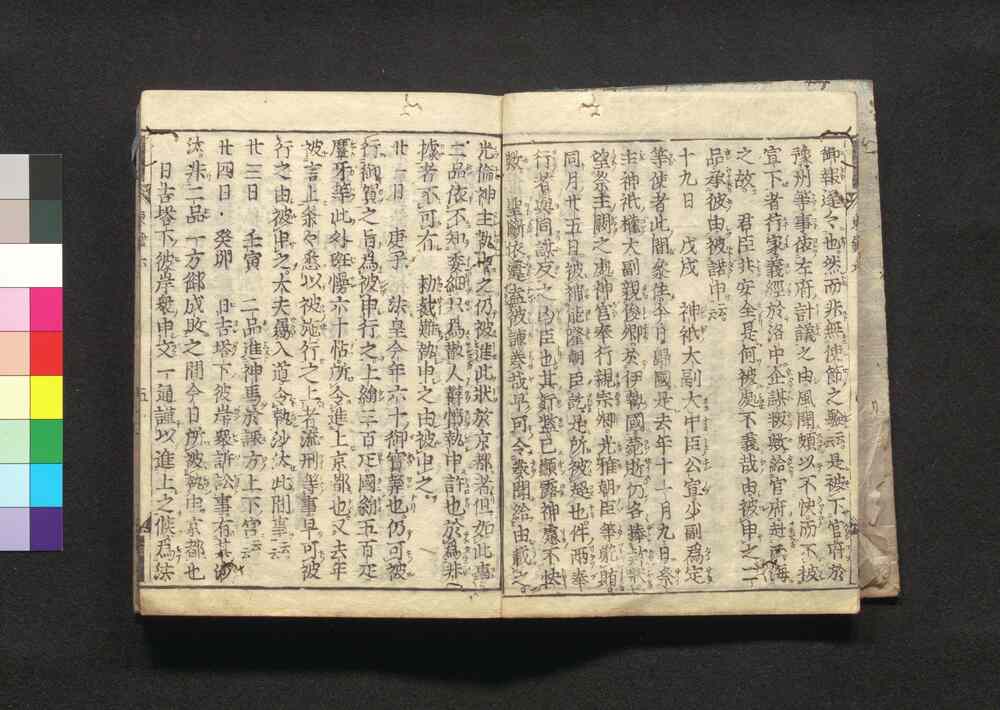 師報達々也然而非無使節之験云云是被下官符於
豫州等事依左府計議之由風聞頗以不快而不被
宣下者行家義經於洛中企謀叛歟給官府赴西海
之故 君臣共安全是何被處不義哉由被申之二
品承彼由被諾申云云
十九日 戊戌 神祇大副大中臣公宣少副為定
等使者此間参住今月歸國是去年十一月九日祭
主神祇權大副親俊卿於伊勢國薨逝仍各捧
望祭主闕之處神官奉行親宗卿光雅朝臣等
同月廿五日被補能隆朝臣訖他所被超也件兩奉
行者與同謀反之凶臣也其
歟 聖斷依
光倫神主執申之仍被進此狀於京都者但如此事
二品依不知委細以為散人辭執申許也於為非
據者不可有 勅裁難執申之由被申之
廿一日 庚子 法皇今年六十御寳算也仍可被
行御賀之旨為被申行之上絹三百疋國絹五百疋
麞牙等此外斑幔六十帖所令進上京都也又去年
被言上条々悉以被施行之上者流刑等事早可被
行之由被申之大夫屬入道令執沙汰此間事云云
廿三日 壬寅 二品進神馬於諏方上下宮云云
廿四日 癸卯 日古塔下彼岸衆訴訟事有其沙
汰非二品一方御成敗之間今日所被執申京都也
日古塔下彼岸衆申文一通謹以進上之候為法